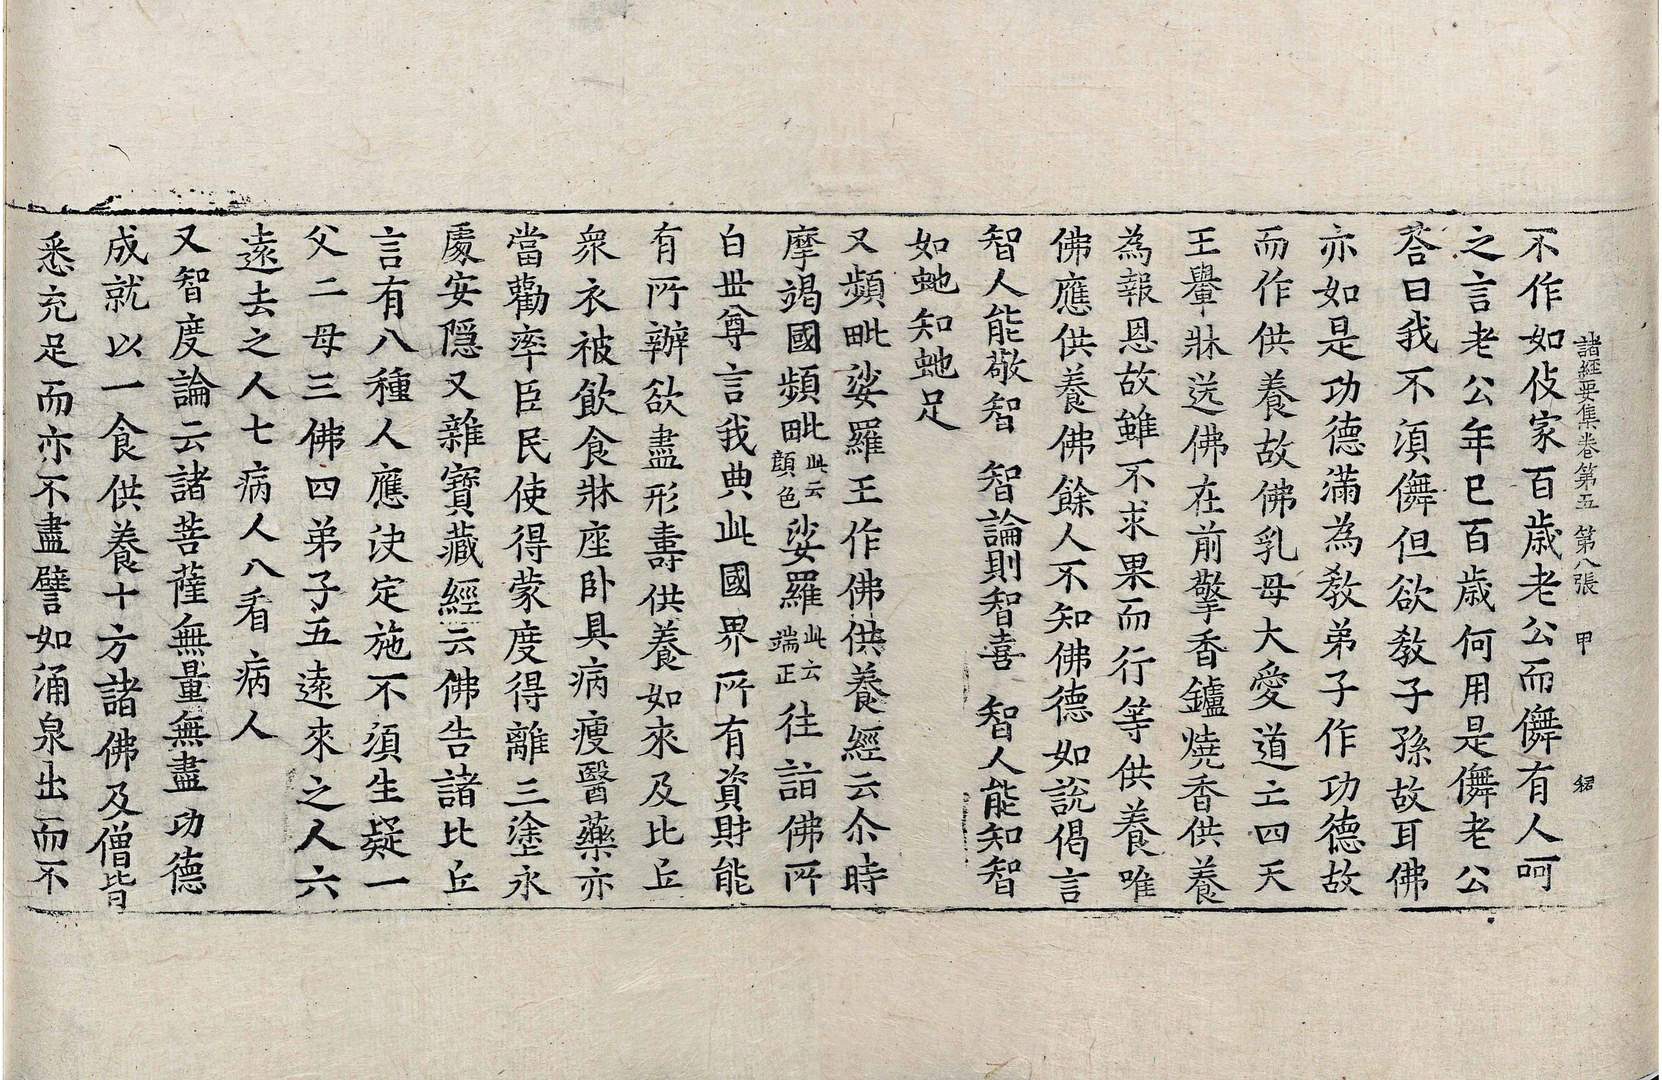 諸經要集卷第五 第八張 甲
不作如伎家百歲老公而儛有人呵
之言老公年已百歲何用是儛老公
荅曰我不湏儛但欲教子孫故耳佛
亦如是功德滿為教弟子作功德故
而作供養故佛乳母大愛道亡四天
王轝牀送佛在前擎香鑪燒香供養
為報恩故雖不求果而行等供養唯
佛應供養佛餘人不知佛德如說偈言
智人能敬智 智論則智喜 智人能知智
如虵知虵足
又頻毗娑羅王作佛供養經云尒時
摩竭國頻毗此云顔色娑羅此云端正往詣佛所
白世尊言我典此國界所有資財能
有所辦欲盡形壽供養如來及比丘
衆衣被飲食牀座卧具病瘦醫藥亦
當勸率臣民使得蒙度得離三塗永
處安隱又雜寶藏經云佛告諸比丘
言有八種人應決定施不湏生疑一
父二母三佛四弟子五遠來之人六
遠去之人七病人八看病人
又智度論云諸菩薩無量無盡功德
成就以一食供養十方諸佛及僧皆
悉充足而亦不盡譬如涌泉出而不